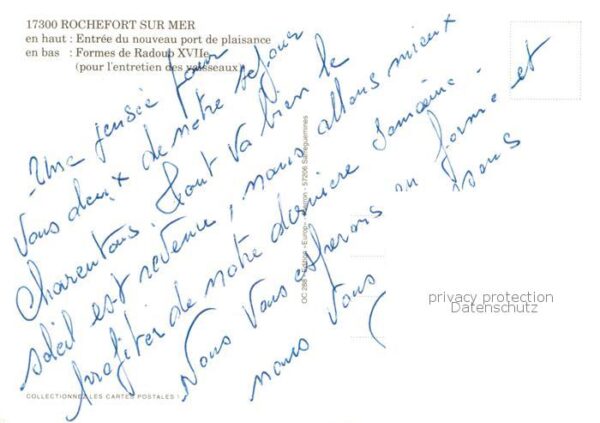 17300 ROCHEFORT SUR MER
en haut : Entrée du nouveau port de plaisance
en bas : Formes de Radoub XVIIe
(pour l'entretien des vaisseaux)
Une pensée pour
vous deux de notre séjour
charentais. Tout va bien le
soleil est revenu, nous allons mieux
profiter de notre dernière semaine.
Nous vous espérons en forme et
nous vous
COLLECTIONNEZ LES CARTES POSTALES !
privacy protection
Datenschutz